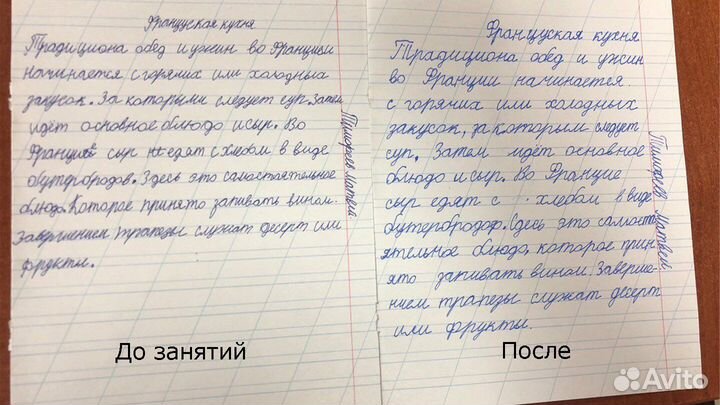 Француская кухня
Традициона обед и ужин во Франции
начинается с горячих или холодных
закусок. За которыми следует суп. Затем
идёт основное блюдо и сыр. Во
Франции сыр не едят с хлебом в виде
бутербродов. Здесь это самостоятельное
блюдо. Которое принято запивать вином.
Завершением трапезы служат десерт или
фрукты.
Тимофеев Матвей
До занятий
Француская кухня
Традициона обед и ужин
во Франции начинается
с горячих или холодных
закусок, за которым следует
суп. Затем идёт основное
блюдо и сыр. Во Франции
сыр едят с хлебом в виде
бутербродов. Сдесь это самосто
ятельное блюдо, которое прин
ято запивать вином. Заверше-
нием трапезы служат десерт
или фрукты.
Тимофеев Матвей
После
Avito